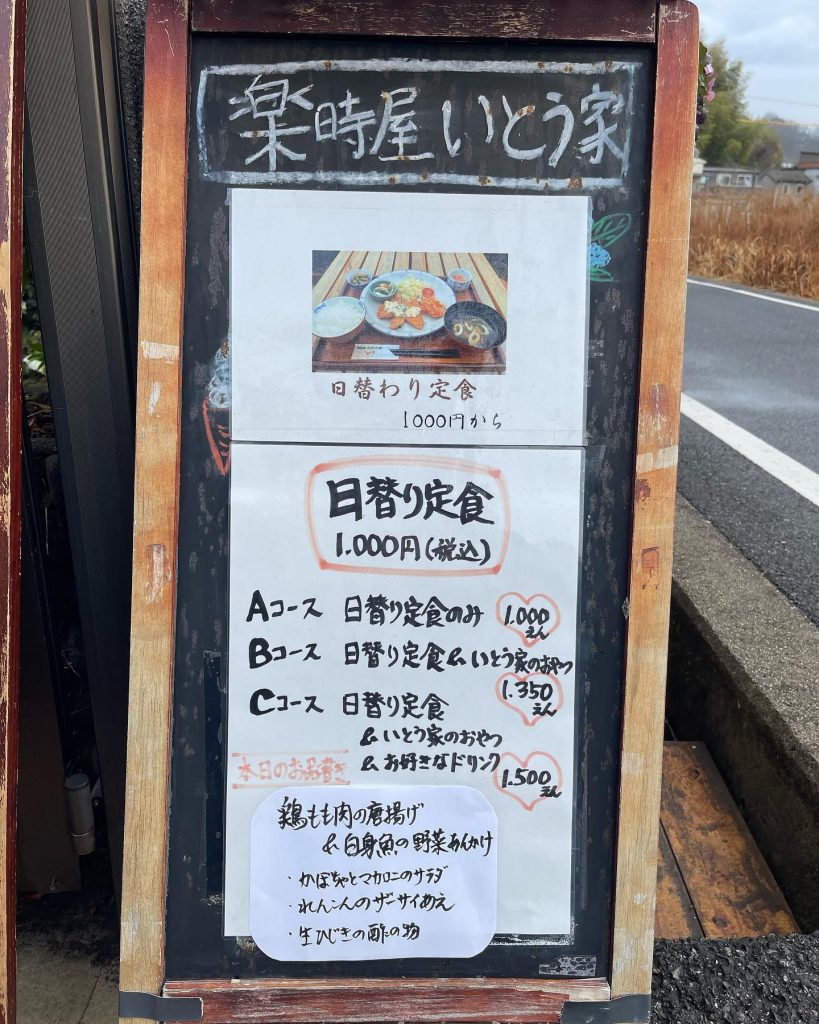 楽時屋 いとう家
日替わり定食
1000円から
日替り定食
1.000円(税込)
Aコース 日替り定食のみ 1.000えん
Bコース 日替り定食&いとう家のおやつ
1.350えん
Cコース 日替り定食
&いとう家のおやつ
&お好きなドリンク 1.500えん
本日のお品書き
鶏もも肉の唐揚げ
&白身魚の野菜あんかけ
・かぼちゃとマカロニのサラダ
・れんこんのザーサイあえ
・生ひじきの酢の物